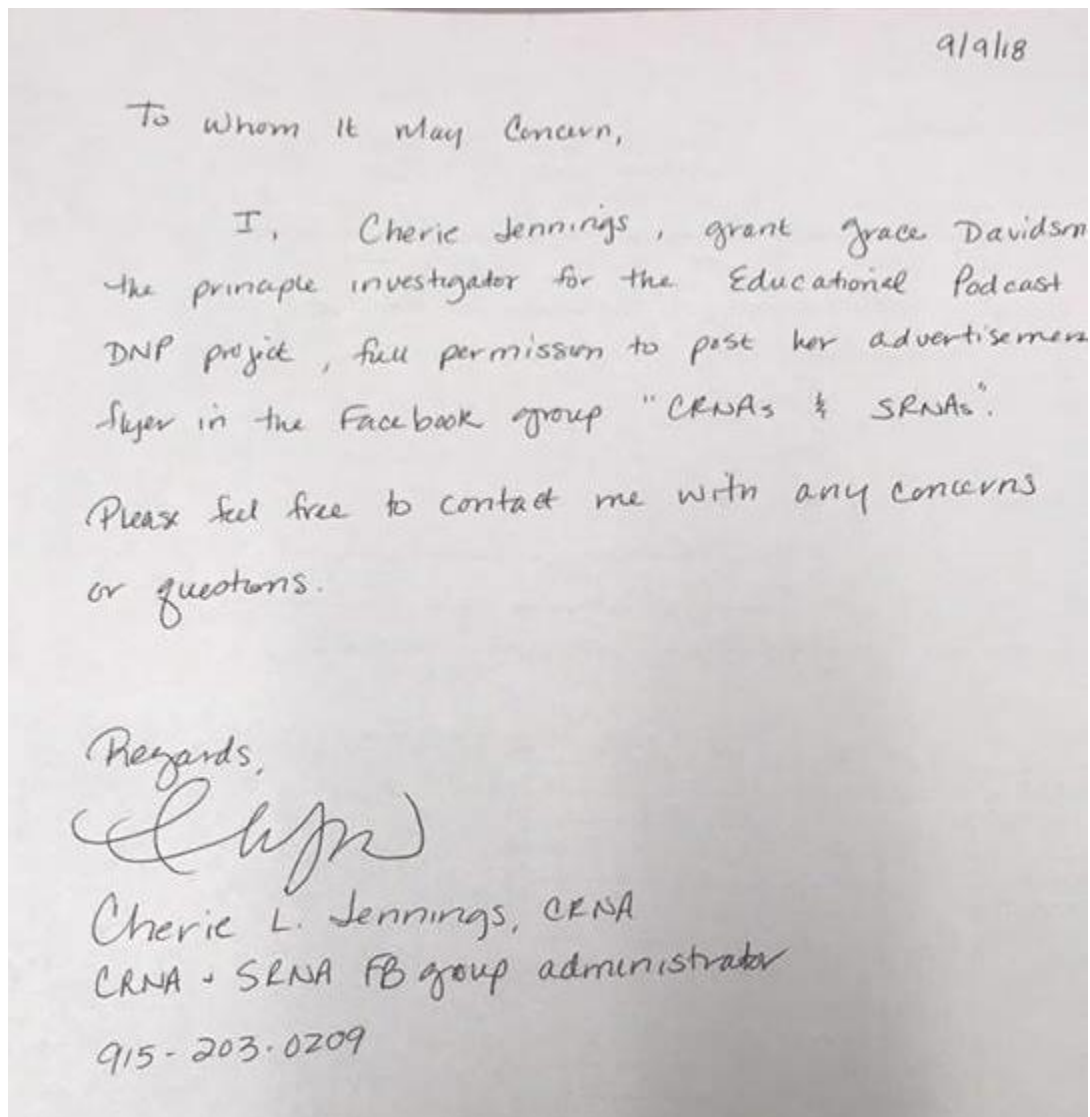 9/9/18
To Whom It May Concern,
I, Cherie Jennings, grant Grace Davidson
the principle investigator for the Educational Podcast
DNP project, full permission to post her advertisemen
flyer in the Facebook group "CRNAs & SRNAs".
Please feel free to contact me with any concerns
or questions.
Regards,
Cherie L. Jennings, CRNA
CRNA + SRNA FB group administrator
915-203-0209